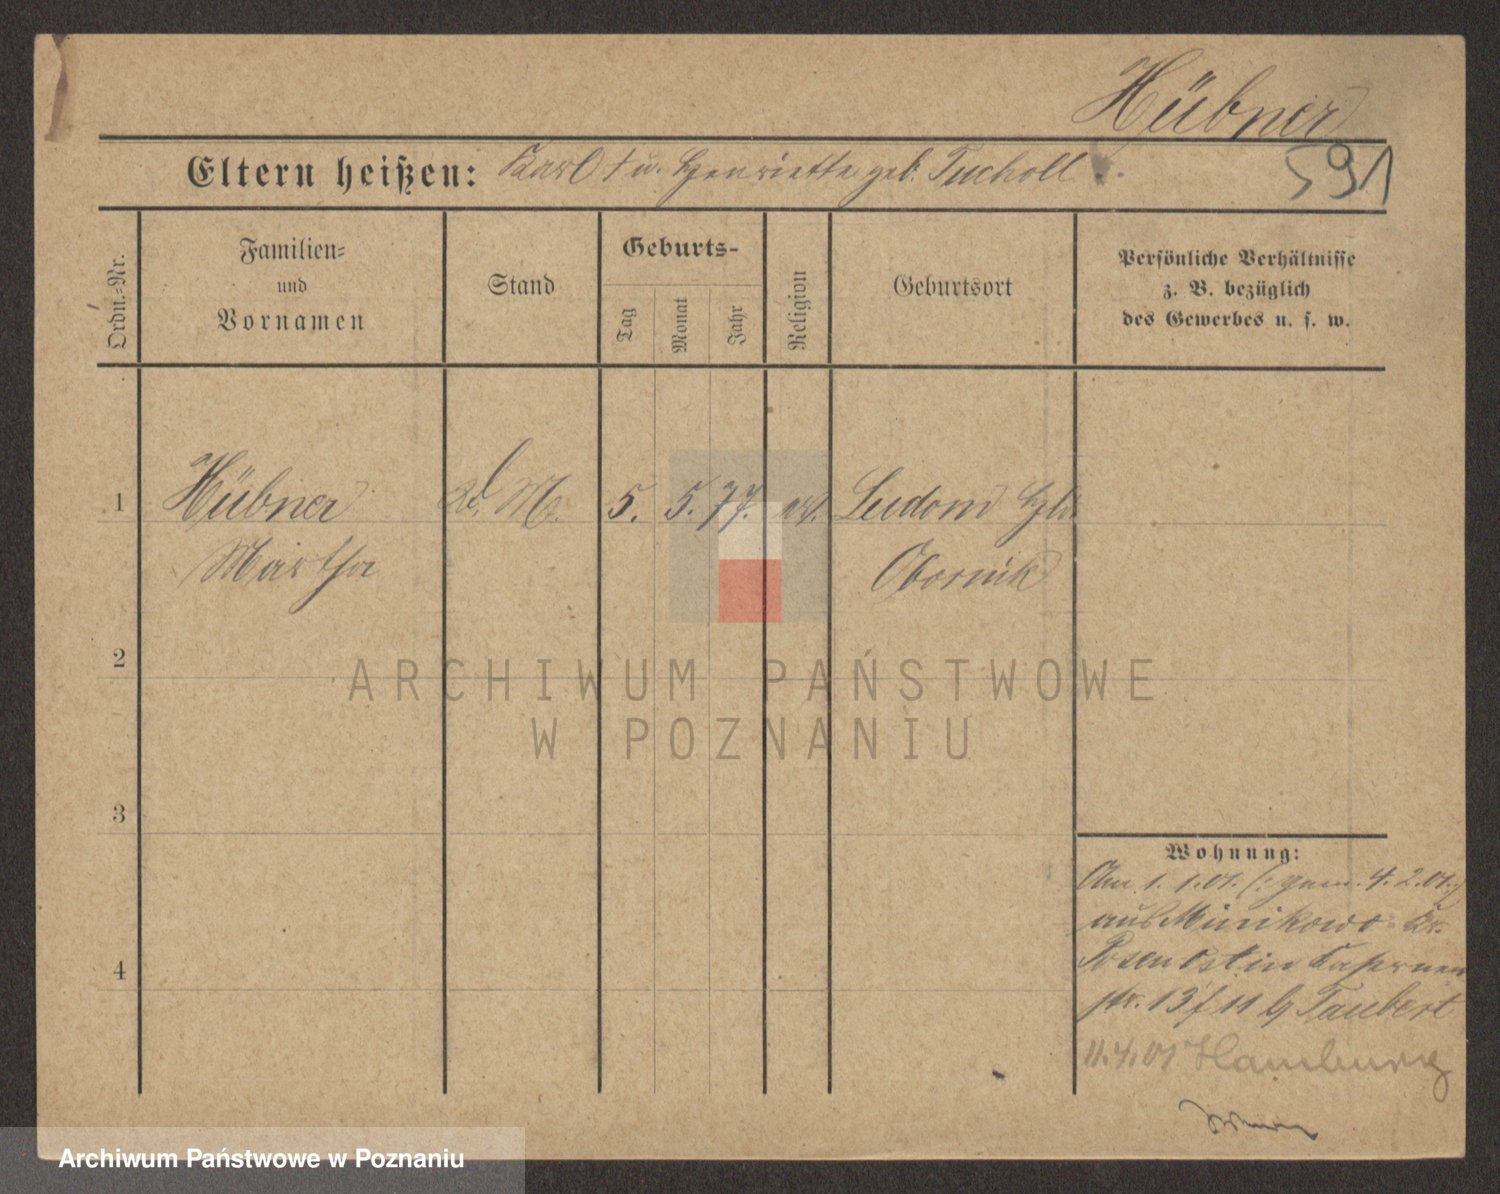 Hübner
591
Eltern heißen: Karl † u. Henriette geb. Tucholl
Ordn.-Nr.
Familien-
und
Vornamen
Stand
Geburts-
Tag
Monat
Jahr
Religion
Geburtsort
Persönliche Verhältnisse
z. B. bezüglich
des Gewerbes u. s. w.
1 Hübner M. 5. 5. 77. ev. Ludom
Martha Obornik
2
ARCHIWUM PAŃSTWOWE
W POZNANIU
3
Wohnung:
Am 1. 1.01. (: gem. 4.2.01.:)
aus Minikowo Kr.
Posen Ost in Kasernen
str. 13 f 11 b Taubert
11.4.01 Hamburg
4
Archiwum Państwowe w Poznaniu